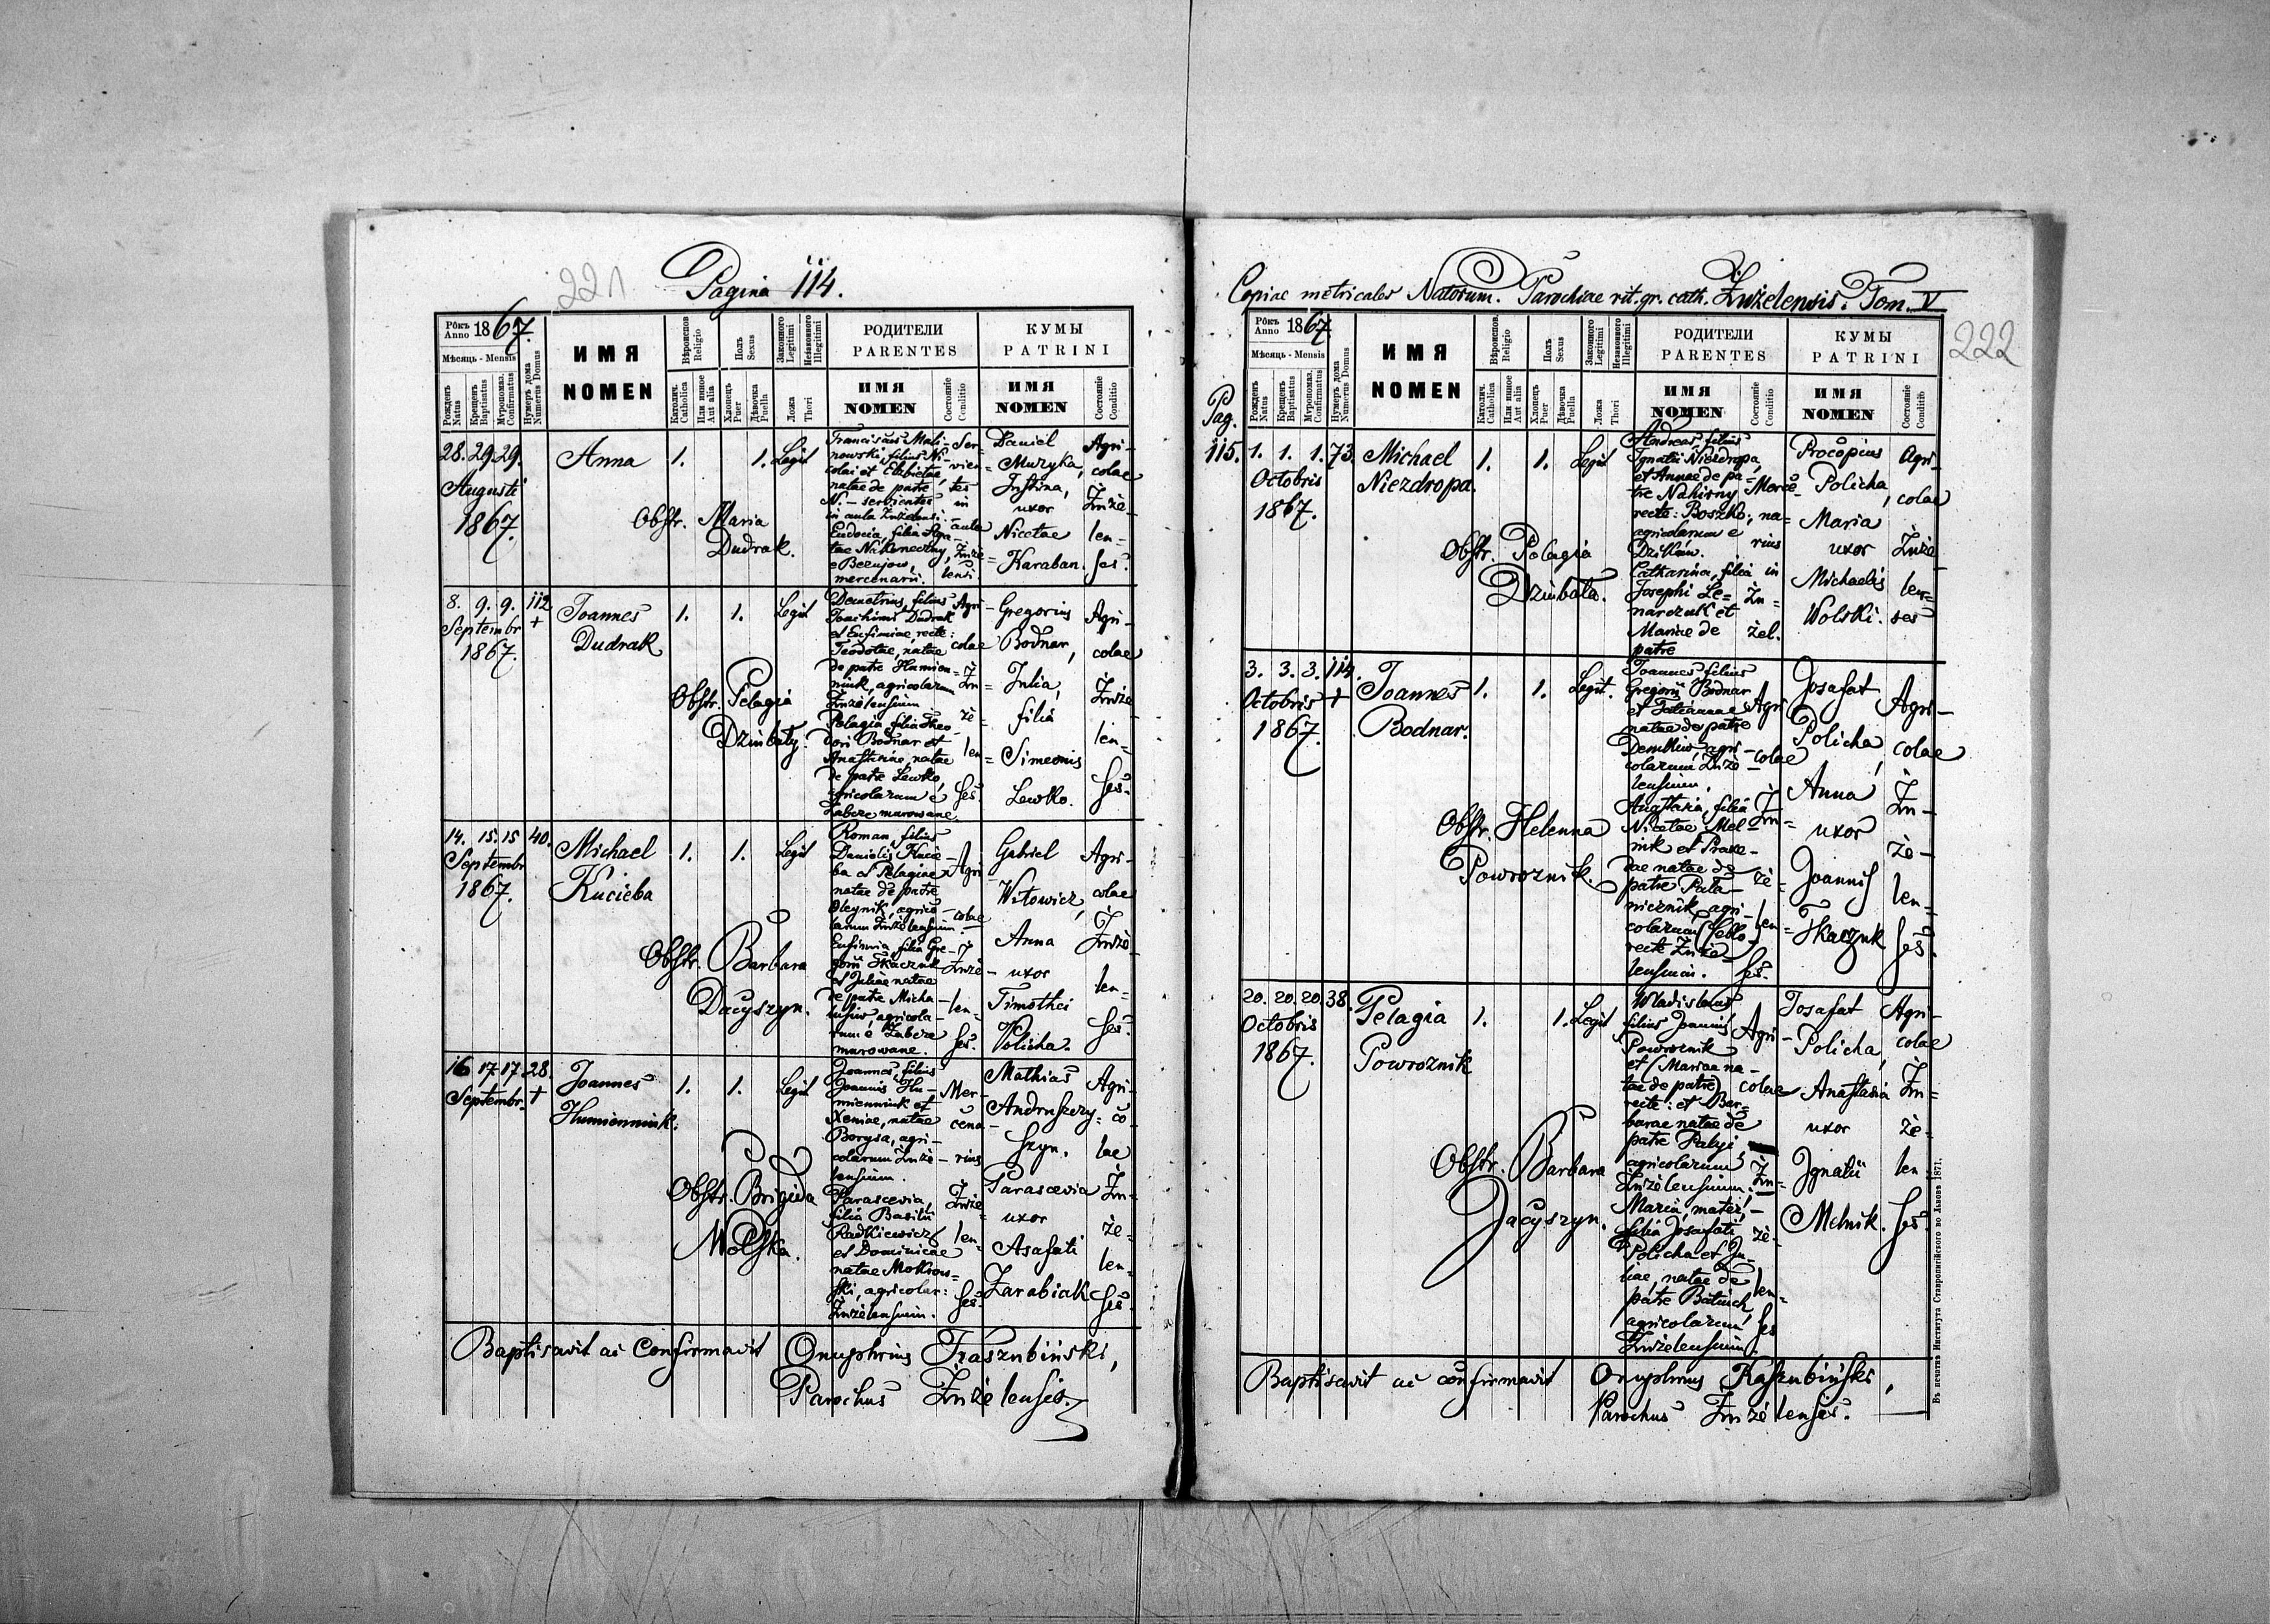 221
Pagina 114.
Рôкъ Anno 1867.
Мѣсяць - Mensis
Рожденъ Natus
Крещенъ Baptisatus
Муропомаз. Confirmatus
Нумеръ дома Numerus Domus
ИМЯ
NOMEN
Вѣроисповѣд. Religio
Католич. Catholica
Или иное Aut alia
Полъ Sexus
Хлопецъ Puer
Дѣвочка Puella
Законного Legitimi
Незаконного Illegitimi
Ложа Thori
РОДИТЕЛИ
PARENTES
ИМЯ
NOMEN
Состояніе Conditio
КУМЫ
PATRINI
ИМЯ
NOMEN
Состояніе Conditio
28. 29. 29.
Augusti
1867.
Anna
1.
1.
Legit
Obstr. Maria
Dudrak.
Franciscus Mali-
nowski, filius Ni-
colai et Elisbietae,
natae de patre
N. - servientes
in aula Żużelensi.
Eudocia, filia
mercenarii.
Ser-
vien-
tes
in
aula
Żuże
lensi
Daniel
Muzyka,
Justina,
uxor
Nicetae
Karaban.
Agri-
colae
Żuże-
len-
ses.
8. 9. 9. 112
Septembr +
1867.
Joannes
Dudrak
1.
1.
Legit
Obstr. Pelagia
Dziubaty.
Demetrius, filius
Joachimi Dudrak
et Eufimiae, recte:
Teodotae, natae
de patre Humien-
niuk, agricolarum
Żużelensium
Pelagia, filia Theo
dori Bodnar et
Anastasiae, natae
de patre Lewko,
agricolarum e
Zabcze murowane.
Agri-
colae
Żu-
że-
len-
ses.
Gregorius
Bodnar,
Julia,
filia
Simeonis
Lewko.
Agri-
colae
Żuże
len-
ses.
14. 15. 15 40.
Septembr
1867.
Michael
Kucieba
1.
1.
Legit
Obstr. Barbara
Dacyszyn.
Roman, filius
Danielis Kucie-
ba et Pelagiae
natae de patre
Oleynik, agrico-
larum Żużelensium.
Eufimia, filia Gre-
gorii Tkaczuk
et Juliae natae
de patre Micha-
lusiw, agricola-
rum e Zabcze
murowane.
Agri-
colae
Żuże-
len-
ses.
Gabriel
Witowicz,
Anna
uxor
Timothei
Policha.
Agri-
colae
Żuże-
len-
ses.
16 17 17 28.
Septembr. +
Joannes
Humienniuk.
1.
1.
Legit
Obstr. Brigida
Wolska.
Joannes, filius
Joannis Hu-
mienniuk et
Xeniae, natae
Borysa, agri-
colarum Żuże-
lensium.
Parascevia,
filia Basilii
Radkiewicz
et Dominicae
natae Mokrow-
ski, agricolar:
Żużelensium.
Mer-
cena-
rius
Żuże
len-
ses.
Mathias
Andruszczy-
szyn.
Parascevia
uxor
Asafati
Zarabiak
Agri-
co-
lae
Żu-
że-
len-
ses.
Baptisavit ac Confirmavit Onuphrius Kraszubiński,
Parochus Żużelensis.
Copiae metricales Natorum. Parochiae rit. gr. cath. Żużelensis. Tom. V
222
Pag.
115.
Рôкъ Anno 1867.
Мѣсяць - Mensis
Рожденъ Natus
Крещенъ Baptisatus
Муропомаз. Confirmatus
Нумеръ дома Numerus Domus
ИМЯ
NOMEN
Вѣроисповѣд. Religio
Католич. Catholica
Или иное Aut alia
Полъ Sexus
Хлопецъ Puer
Дѣвочка Puella
Законного Legitimi
Незаконного Illegitimi
Ложа Thori
РОДИТЕЛИ
PARENTES
ИМЯ
NOMEN
Состояніе Conditio
КУМЫ
PATRINI
ИМЯ
NOMEN
Состояніе Conditio
1. 1. 1. 73.
Octobris
1867.
Michael
Niezdropa.
1.
1.
Legit
Obstr. Pelagia
Dziubata.
Andreas, filius
Ignatii Niezdropa,
et Annae de pa-
tre Nahirny
recte: Boszko,
agricolarum e
Dziktów.
Catharina, filia
Josephi Le-
narczuk et
Mariae de
patre
Merce-
na-
rius
in
Żu-
żel.
Procopius
Policha,
Maria
uxor
Michaelis
Wolski.
Agri-
colae
Żuże
len-
ses
3. 3. 3. 114.
Octobris +
1867.
Joannes
Bodnar.
1.
1.
Legit.
Obstr. Helenna
Powroznik.
Joannes, filius
Gregorii Bodnar
et Tatiannae
natae de patre
Demkiw, agri-
colarum Żuże-
lensium.
Anastasia, filia
Nicetae Mel-
nik et Praxe-
dae natae de
patre Pala-
mieznik, agri-
colarum
recte Żuże-
lensium.
Agri
colae
Żu-
że-
len-
ses.
Josafat
Policha,
Anna
uxor
Joannis
Tkaczuk
Agri-
colae
Żu-
że-
len-
ses.
20. 20. 20. 38.
Octobris
1867.
Pelagia
Powroznik
1.
1.
Legit
Obstr. Barbara
Jacyszyn.
Wladislaus
filius Joannis
Powroznik
et (Mariae na-
tae de patre)
recte: et Bar-
barae natae de
patre Palyi,
agricolarum
Żużelensium.
Maria, mater,
filia Josafati
Policha et Ju-
liae, natae de
patre Batiuch
agricolarum
Żużelensium.
Agri-
colae
Żu-
że-
len-
ses
Josafat
Policha,
Anastasia
uxor
Ignatii
Melnik.
Agri-
colae
Żu-
że-
len
ses.
Baptisavit ac confirmavit Onuphrius Kraszubiński,
Parochus Żużelensis.
Въ печатнѣ Института Ставропигійского во Львовѣ 1871.